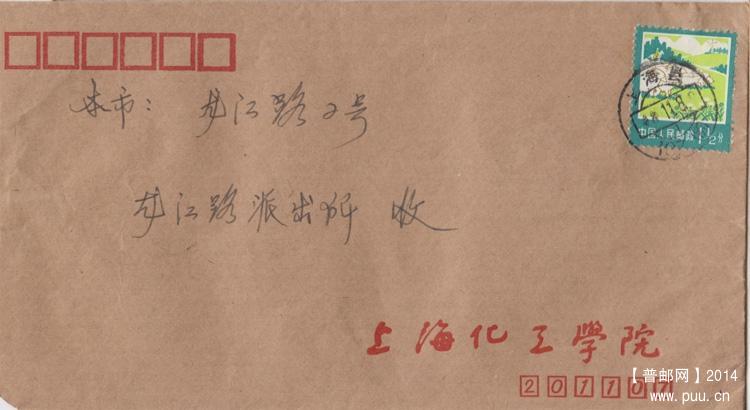 中国人民邮政 1½分
本市：龙江路2号
龙江路派出所 收
上海化工學院
201107
【普邮网】2014
www.puu.cn